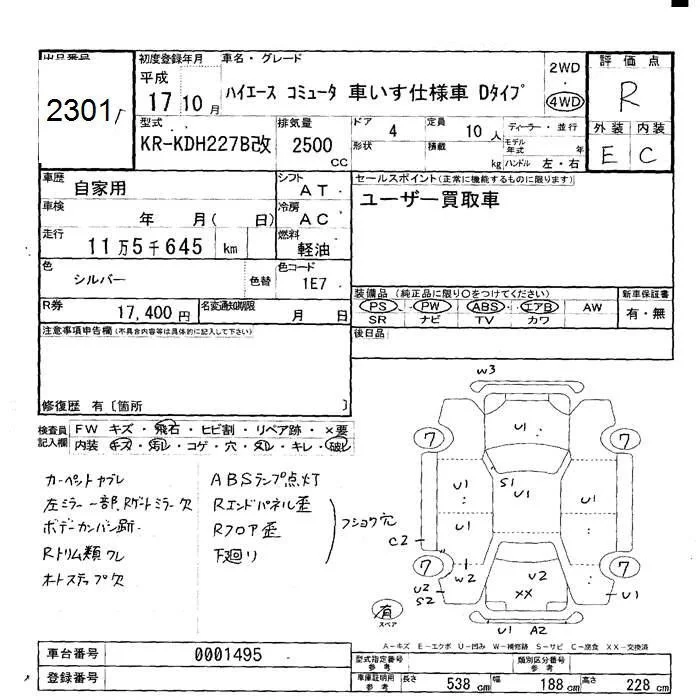 出品番号
2301
初度登録年月
平成
17 10 月
車名・グレード
ハイエース コミュータ 車いす仕様車 Dタイプ
2WD
4WD
評価点
R
外装 内装
E C
型式
KR-KDH227B改
排気量
2500
CC
ドア
4
定員
10 人
ディーラー・並行
形状
積載
kg
モデル年式
年
ハンドル 左・右
車歴
自家用
シフト
AT
車検
年 月( 日)
冷房
AC
走行
11万5千645 km
燃料
軽油
色
シルバー
色替
色コード
1E7
R券
17,400円
名変通知期限
月 日
セールスポイント(正常に機能するものに限ります)
ユーザー買取車
装備品 (純正品に限り○をつけてください)
PS PW ABS エアB AW
SR ナビ TV カワ
新車保証書
有・無
後日品
注意事項申告欄(不具合内容等は具体的に記入して下さい)
修復歴 有〔箇所 〕
検査員記入欄
FW キズ・飛石・ヒビ割・リペア跡・×要
内装 キズ・汚レ・コゲ・穴・ヌレ・キレ・破レ
左ミラー一部、Rゲートミラー欠
ボデーカンバン跡
Rトリム類ワレ
オートステップ欠
ABSランプ点灯
Rエンドパネル歪
Rフロア歪
下廻り
フショク穴
W3
7
U1
7
S1
U1
U1
U1
U1
U1
C2
7
W2
U2
XX
7
U2
S2
U1
U1 A2
有
スペア
A-キズ E-エクボ U-凹み W-補修跡 S-サビ C-腐食 XX-交換済
車台番号
0001495
登録番号
型式指定番号
参考
類別区分番号
参考
車庫証明用
参考
長さ
538 cm
幅
188 cm
高さ
228 cm